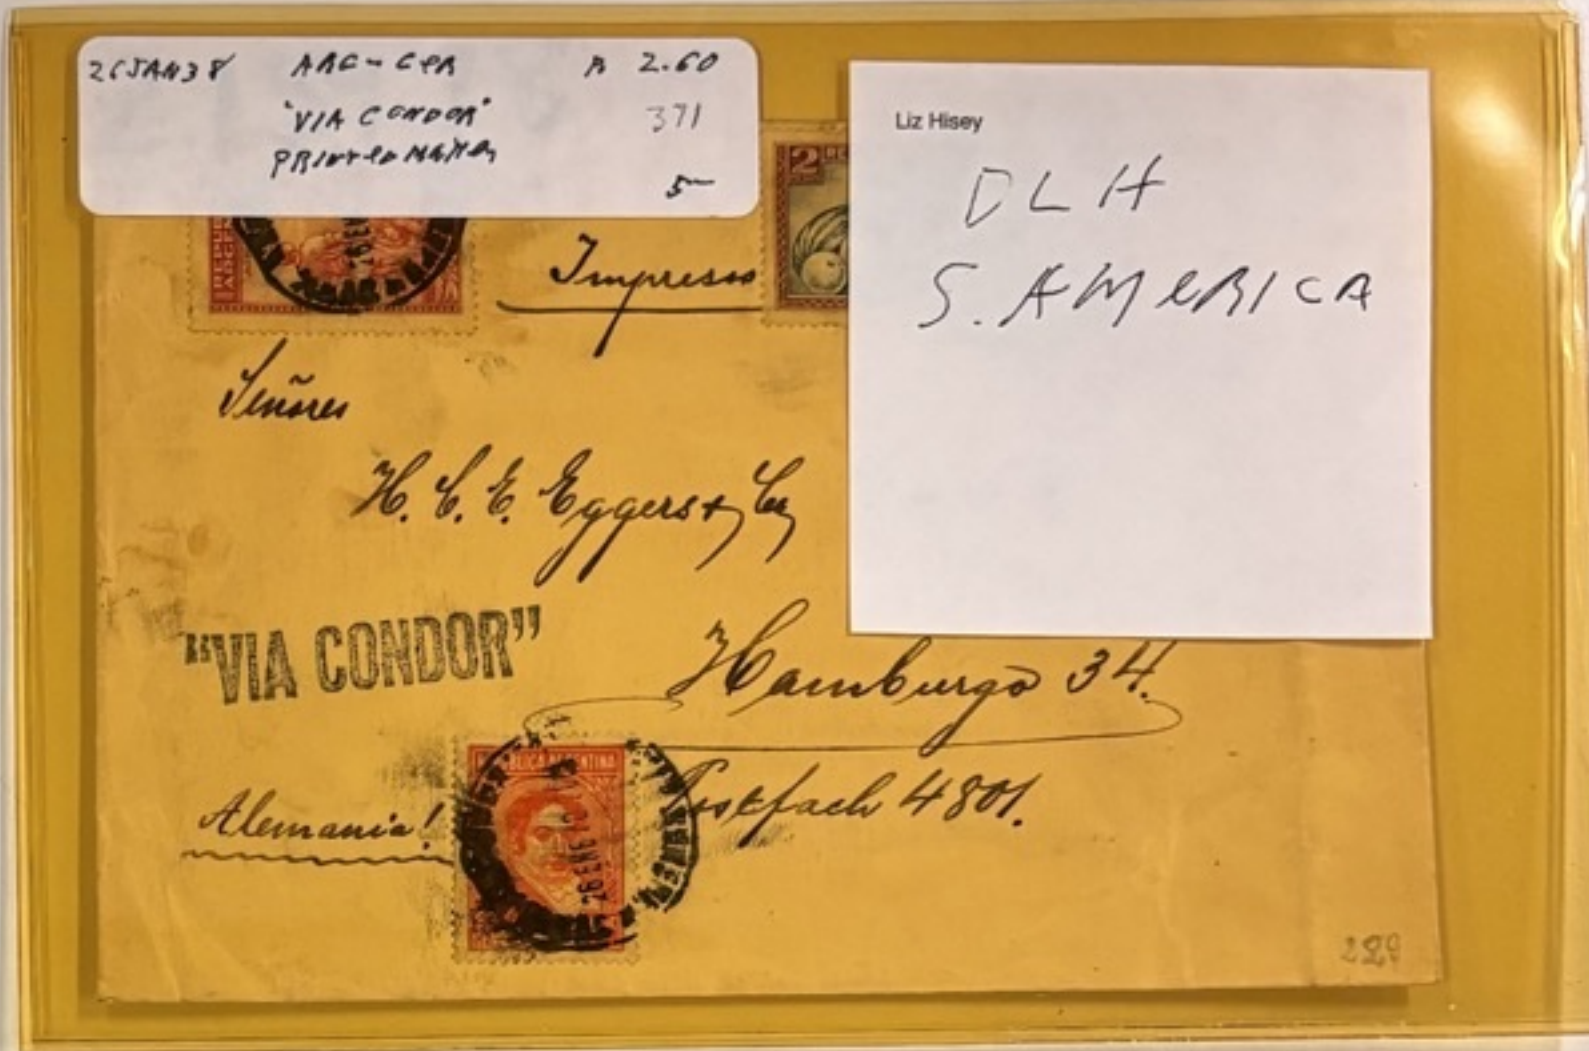 26JAN38 ARG-GER R 2.60
"VIA CONDOR" 371
PRINTED MATTER
5-
Liz Hisey
DLH
S. AMERICA
2
Impresos
Señores
H. C. E. Eggers + Co
"VIA CONDOR"
Hamburgo 34.
Alemania!
Postfach 4801.
REPUBLICA ARGENTINA
26 ENE
229